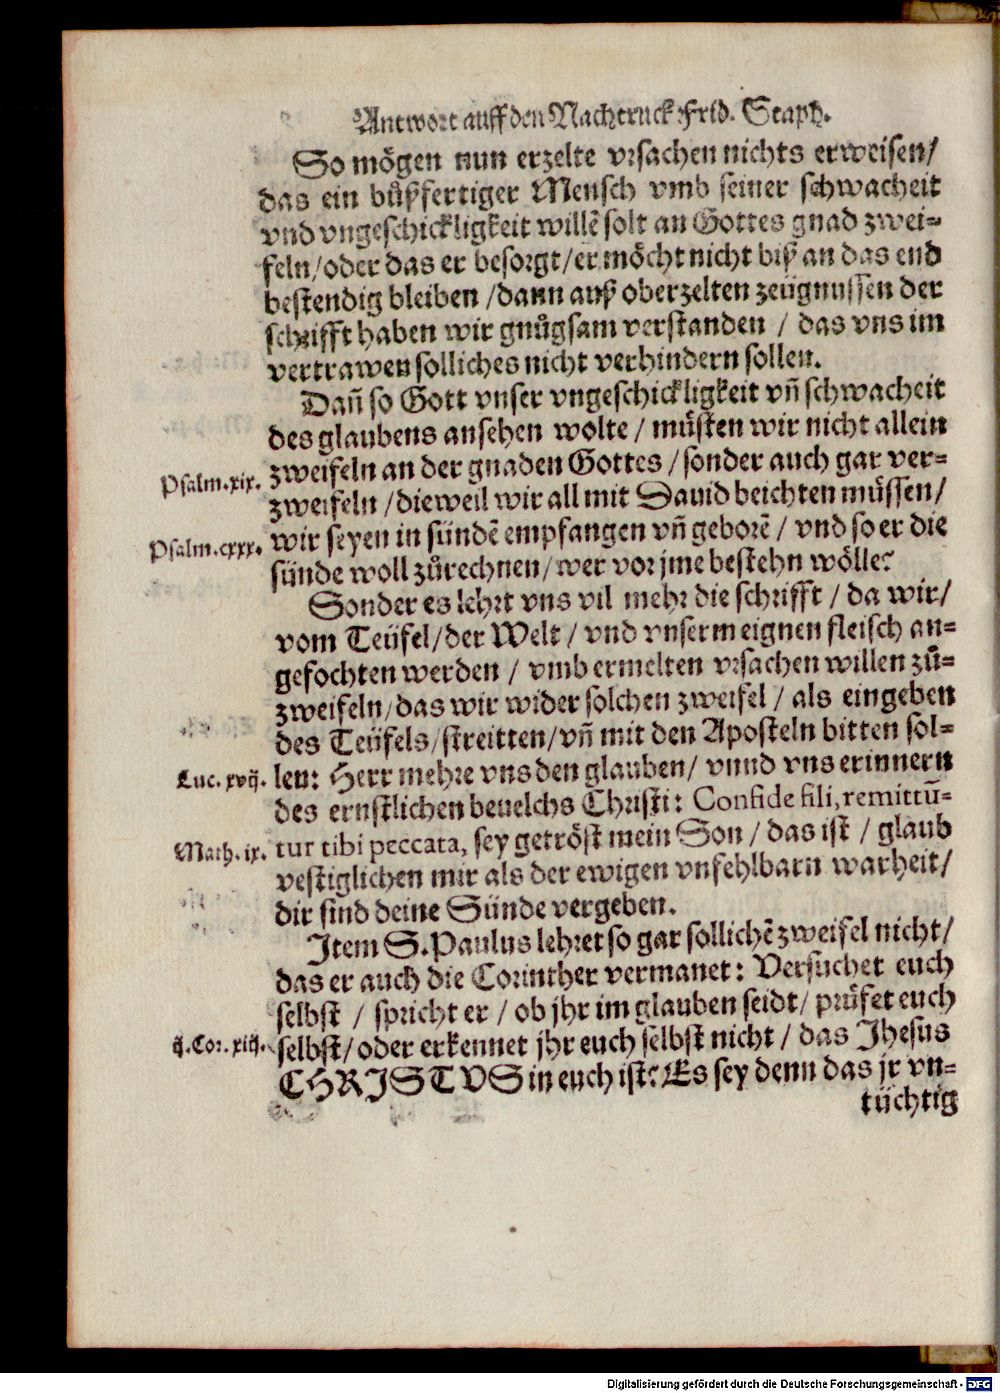 Antwort auff den Nachtruck Frid. Staph.
So mögen nun erzelte vrsachen nichts erweisen/
das ein bůßfertiger Mensch vmb seiner schwacheit
vnd vngeschickligkeit willē solt an Gottes gnad zwei-
feln/oder das er besorgt/er möcht nicht biß an das end
bestendig bleiben/dann auß oberzelten zeügnussen der
schrifft haben wir gnůgsam verstanden / das vns im
vertrawen solliches nicht verhindern sollen.
Dañ so Gott vnser vngeschickligkeit vñ schwacheit
des glaubens ansehen wolte / müsten wir nicht allein
zweifeln an der gnaden Gottes / sonder auch gar ver-
Psalm.xix.
zweifeln /dieweil wir all mit Dauid beichten müssen/
wir seyen in sündē empfangen vñ geborē / vnd so er die
Psalm.cxxx.
sünde woll zůrechnen/wer vor jme bestehn wölle?
Sonder es lehrt vns vil mehr die schrifft / da wir/
vom Teüfel/der Welt / vnd vnserm eignen fleisch an-
gefochten werden / vmb ermelten vrsachen willen zů-
zweifeln/das wir wider solchen zweifel / als eingeben
des Teüfels/streitten/vñ mit den Aposteln bitten sol-
Luc. xvij.
len: Herr mehre vns den glauben/ vnnd vns erinnern
des ernstlichen beuelchs Christi: Confide fili, remittū-
Math. ix.
tur tibi peccata, sey getröst mein Son / das ist / glaub
vestiglichen mir als der ewigen vnfehlbarn warheit/
dir sind deine Sünde vergeben.
Item S. Paulus lehret so gar sollichē zweifel nicht/
das er auch die Corinther vermanet: Versuchet euch
selbst / spricht er / ob jhr im glauben seidt/ prüfet euch
ij. Cor. xiij.
selbst/oder erkennet jhr euch selbst nicht / das Jhesus
CHRISTVS in euch ist? Es sey denn das jr vn-
tüchtig
Digitalisierung gefördert durch die Deutsche Forschungsgemeinschaft - DFG